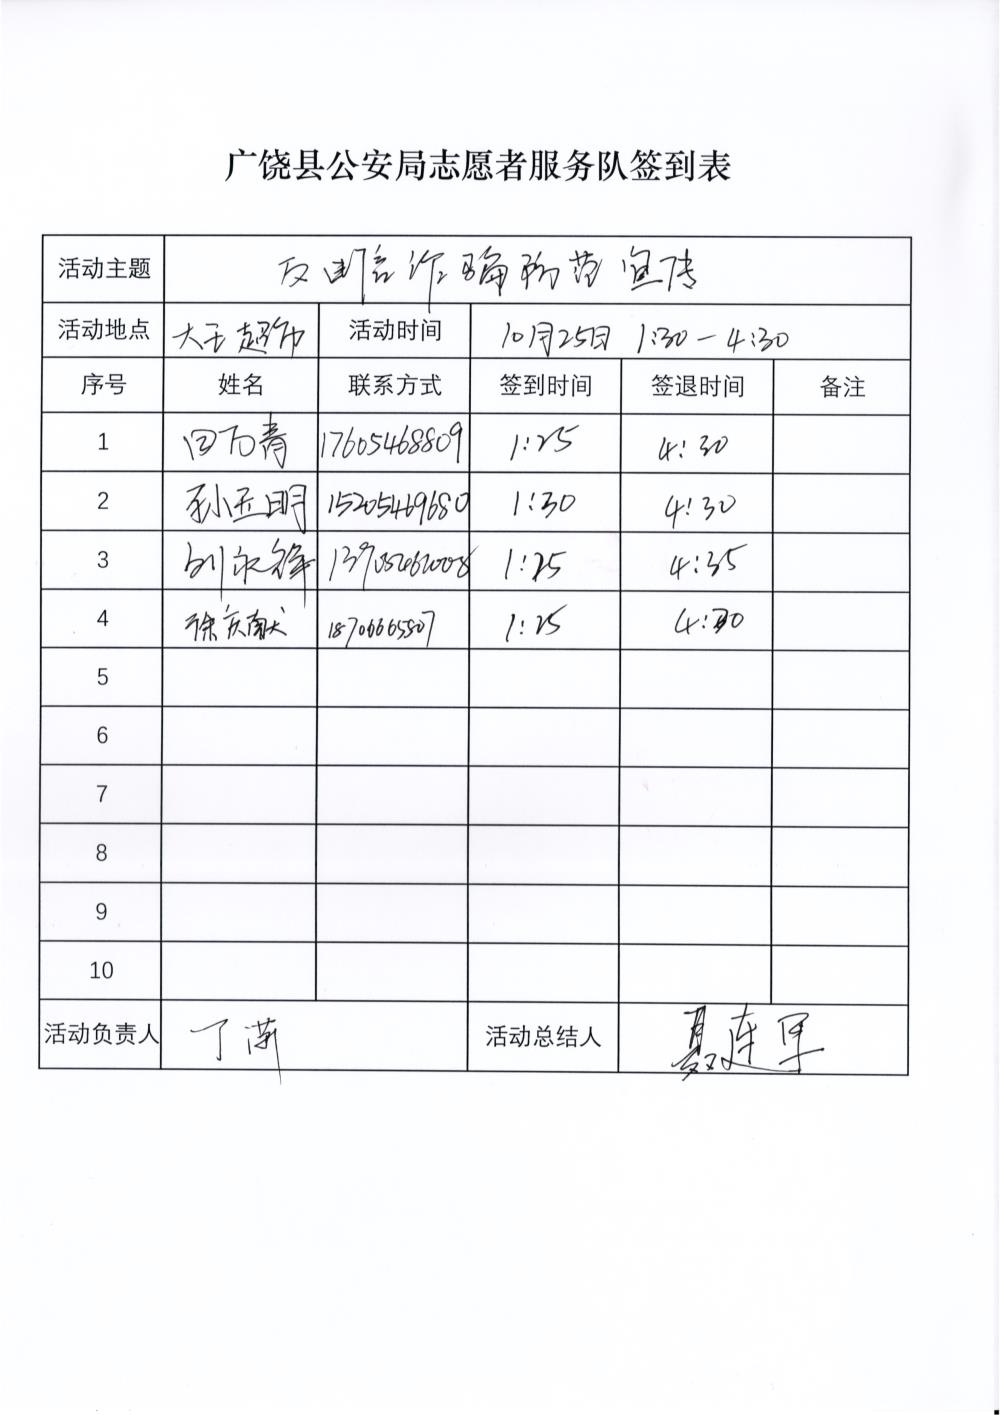 广饶县公安局志愿者服务队签到表
活动主题 反电信诈骗防范宣传
活动地点 大王超市 活动时间 10月25日 1:30-4:30
序号 姓名 联系方式 签到时间 签退时间 备注
1 17605468809 1:25 4:30
2 孙亚明 15205469680 1:30 4:30
3 刘永锋 1:25 4:35
4 徐庆献 18706665807 1:25 4:30
5
6
7
8
9
10
活动负责人 活动总结人 聂连军